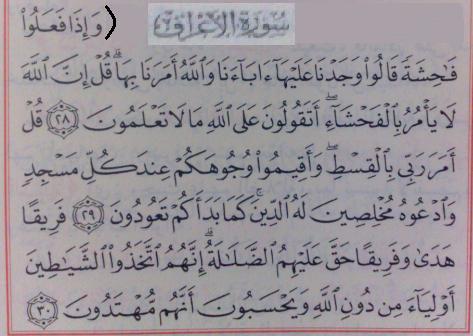 سُورَةُ الأَعْرَافِ (وَإِذَا فَعَلُوا۟
فَٰحِشَةً قَالُوا۟ وَجَدْنَا عَلَيْهَآ ءَابَآءَنَا وَٱللَّهُ أَمَرَنَا بِهَا ۗ قُلْ إِنَّ ٱللَّهَ
لَا يَأْمُرُ بِٱلْفَحْشَآءِ ۖ أَتَقُولُونَ عَلَى ٱللَّهِ مَا لَا تَعْلَمُونَ ٢٨ قُلْ
أَمَرَ رَبِّى بِٱلْقِسْطِ ۖ وَأَقِيمُوا۟ وُجُوهَكُمْ عِندَ كُلِّ مَسْجِدٍ
وَٱدْعُوهُ مُخْلِصِينَ لَهُ ٱلدِّينَ ۚ كَمَا بَدَأَكُمْ تَعُودُونَ ٢٩ فَرِيقًا
هَدَىٰ وَفَرِيقًا حَقَّ عَلَيْهِمُ ٱلضَّلَٰلَةُ ۗ إِنَّهُمُ ٱتَّخَذُوا۟ ٱلشَّيَٰطِينَ
أَوْلِيَآءَ مِن دُونِ ٱللَّهِ وَيَحْسَبُونَ أَنَّهُم مُّهْتَدُونَ ٣٠